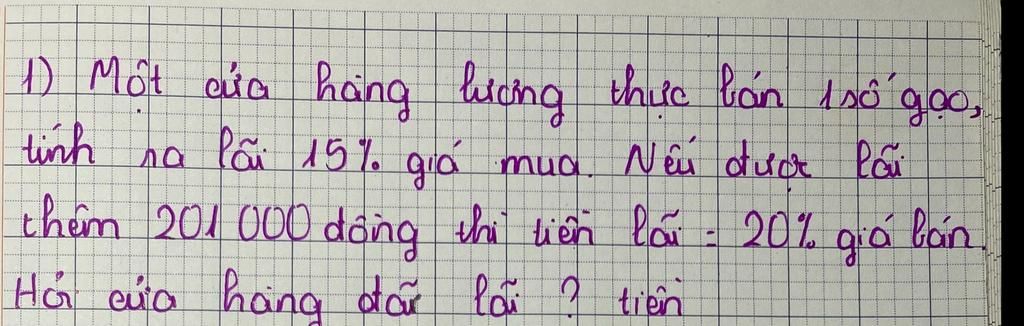 1) Một cửa hàng lương thực bán 1 số gạo,
tính ra lãi 15% giá mua. Nếu được lãi
thêm 201 000 đồng thì tiền lãi = 20% giá bán.
Hỏi cửa hàng đã lãi ? tiền